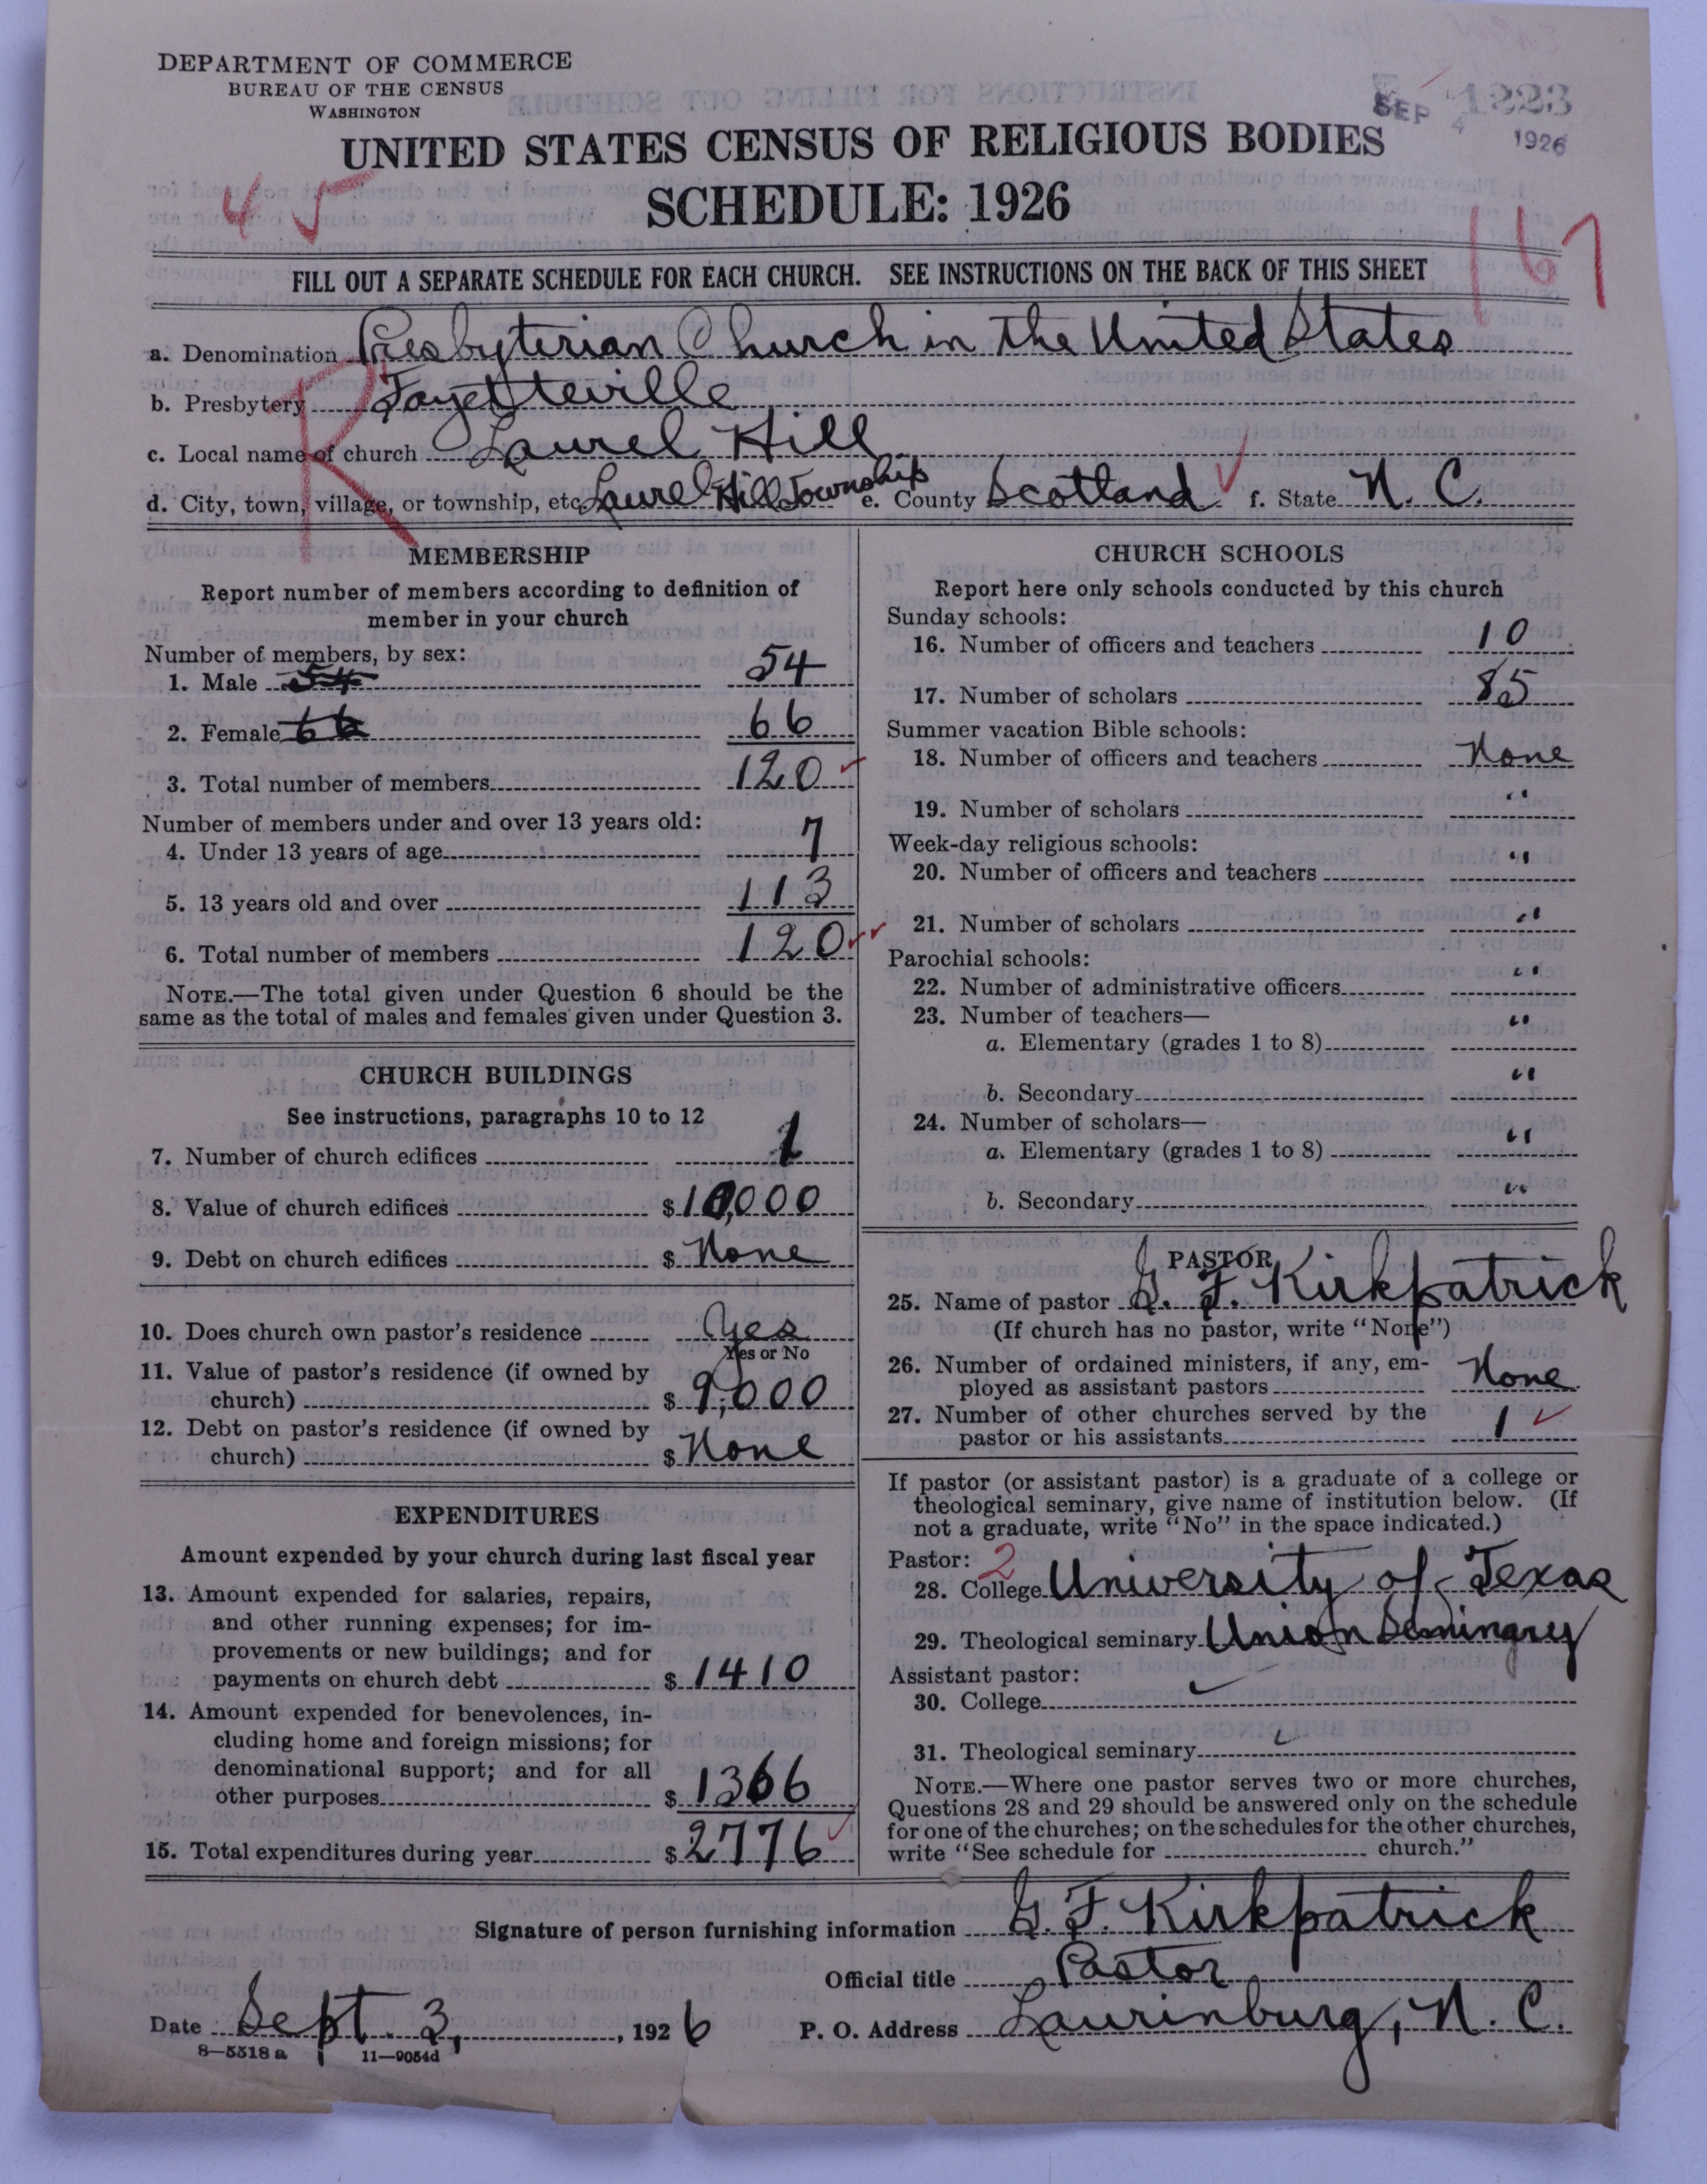 DEPARTMENT OF COMMERCE
BUREAU OF THE CENSUS
WASHINGTON
SEP 4 1926
UNITED STATES CENSUS OF RELIGIOUS BODIES
SCHEDULE: 1926
45
167
FILL OUT A SEPARATE SCHEDULE FOR EACH CHURCH. SEE INSTRUCTIONS ON THE BACK OF THIS SHEET
a. Denomination Presbyterian Church in the United States
b. Presbytery Fayetteville
R
c. Local name of church Laurel Hill
d. City, town, village, or township, etc. Laurel Hill Township e. County Scotland f. State N. C.
MEMBERSHIP
Report number of members according to definition of
member in your church
Number of members, by sex:
1. Male 54 54
2. Female 66 66
3. Total number of members 120
Number of members under and over 13 years old:
4. Under 13 years of age 7
5. 13 years old and over 113
6. Total number of members 120
NOTE.—The total given under Question 6 should be the
same as the total of males and females given under Question 3.
CHURCH BUILDINGS
See instructions, paragraphs 10 to 12
7. Number of church edifices 1
8. Value of church edifices $10,000
9. Debt on church edifices $ None
10. Does church own pastor's residence Yes
Yes or No
11. Value of pastor's residence (if owned by
church) $ 9,000
12. Debt on pastor's residence (if owned by
church) $ None
EXPENDITURES
Amount expended by your church during last fiscal year
13. Amount expended for salaries, repairs,
and other running expenses; for im-
provements or new buildings; and for
payments on church debt $ 1410
14. Amount expended for benevolences, in-
cluding home and foreign missions; for
denominational support; and for all
other purposes $ 1366
15. Total expenditures during year $ 2776
CHURCH SCHOOLS
Report here only schools conducted by this church
Sunday schools:
16. Number of officers and teachers 10
17. Number of scholars 85
Summer vacation Bible schools:
18. Number of officers and teachers None
19. Number of scholars "
Week-day religious schools:
20. Number of officers and teachers "
21. Number of scholars "
Parochial schools:
22. Number of administrative officers "
23. Number of teachers—
a. Elementary (grades 1 to 8) "
b. Secondary "
24. Number of scholars—
a. Elementary (grades 1 to 8) "
b. Secondary "
PASTOR
25. Name of pastor G. F. Kirkpatrick
(If church has no pastor, write "None")
26. Number of ordained ministers, if any, em-
ployed as assistant pastors None
27. Number of other churches served by the
pastor or his assistants 1
If pastor (or assistant pastor) is a graduate of a college or
theological seminary, give name of institution below. (If
not a graduate, write "No" in the space indicated.)
Pastor: 2
28. College University of Texas
29. Theological seminary Union Seminary
Assistant pastor:
30. College
31. Theological seminary
NOTE.—Where one pastor serves two or more churches,
Questions 28 and 29 should be answered only on the schedule
for one of the churches; on the schedules for the other churches,
write "See schedule for church."
Signature of person furnishing information G. F. Kirkpatrick
Official title Pastor
Date Sept. 3, 1926 P. O. Address Laurinburg, N. C.
8—5518a 11—9054d